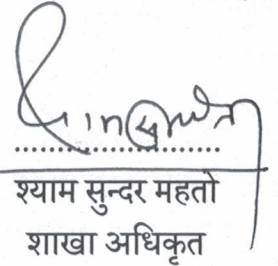 श्याम सुन्दर महतो
शाखा अधिकृत